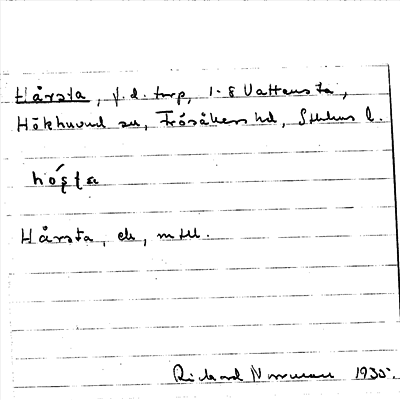 Hårsta, f.d. torp, 1:8 Vattensta,
Hökhuvud sn, Frösåkers hd, Sthlms l.
Hårsta, ek, mtll.
Richard Norrman 1935.